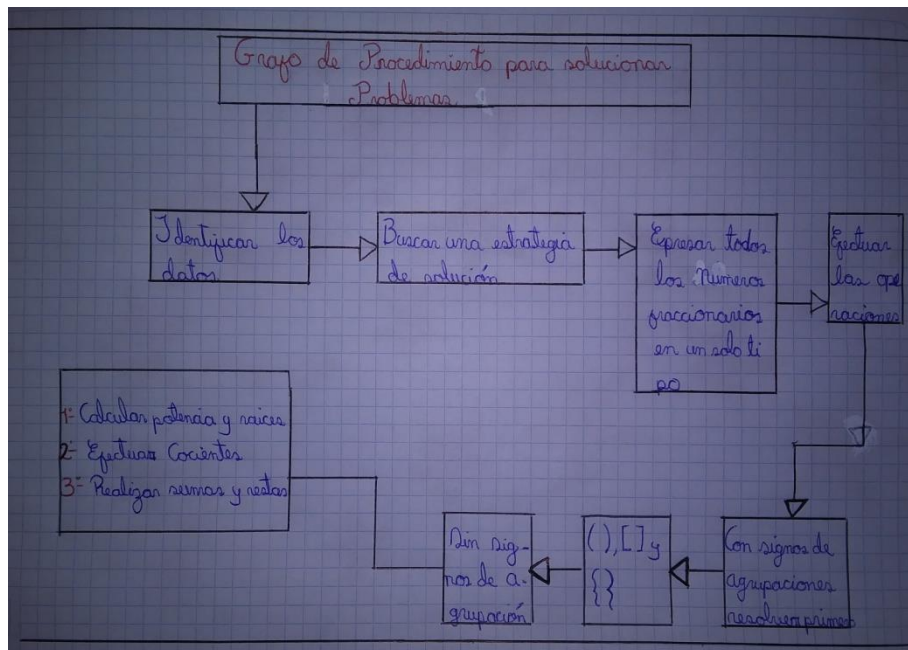 Grafo de Procedimiento para solucionar
Problemas
Identificar los
datos
Buscar una estrategia
de solución
Expresar todos
los Numeros
fraccionarios
en un solo ti
po
Efectuar
las ope
raciones
Con signos de
agrupaciones
resolver primero
( ), [ ] y
{ }
Sin sig-
nos de a-
grupación
1- Calcular potencia y raices
2- Efectuar Cocientes
3- Realizar sumas y restas